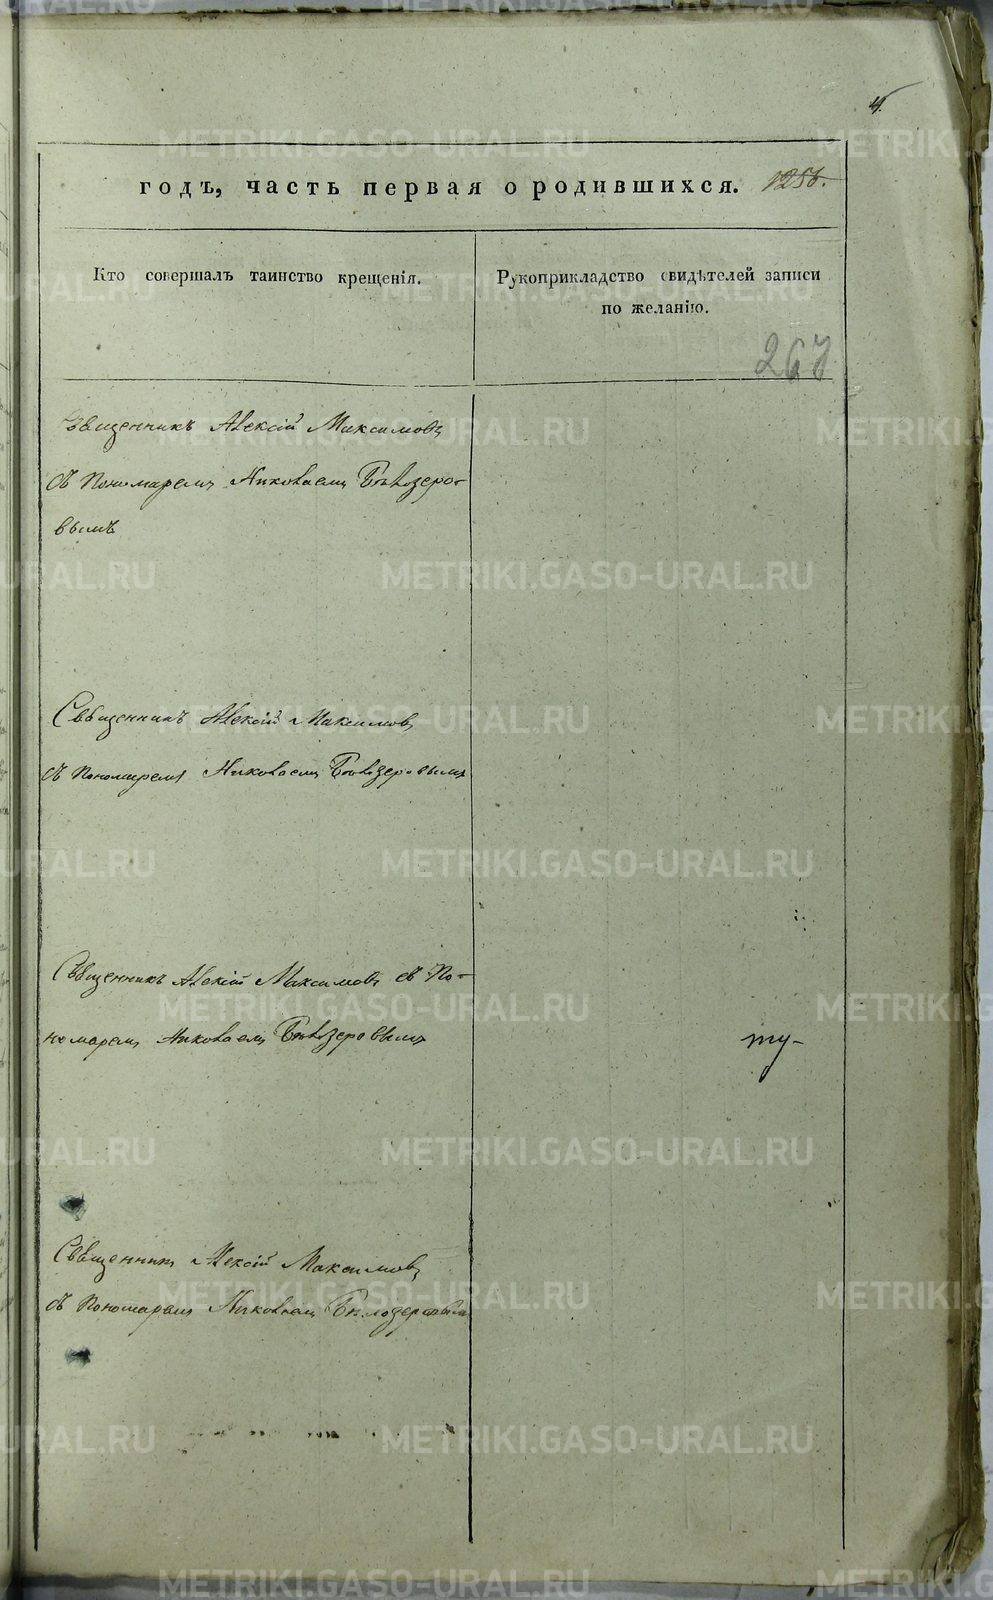 4.
годъ, часть первая о родившихся. 1256.
Кто совершалъ таинство крещенія.
Рукоприкладство свидѣтелей записи
по желанію.
267
Священникъ Алексій Максимовъ
съ Пономаремъ Николаемъ Бѣлозеро-
вымъ
Священникъ Алексій Максимовъ
съ Пономаремъ Николаемъ Бѣлозеровымъ
Священникъ Алексій Максимовъ съ По-
номаремъ Николаемъ Бѣлозеровымъ
ту-
Священникъ Алексій Максимовъ
съ Пономаремъ Николаемъ Бѣлозеровымъ
METRIKI.GASO-URAL.RU